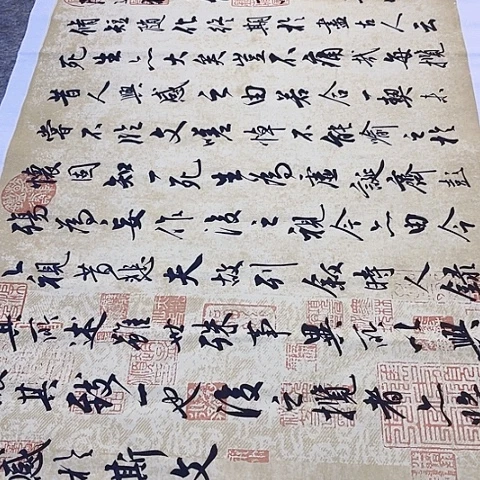 脩短隨化終期於盡古人云
死生亦大矣豈不痛哉每攬
昔人興感之由若合一契未
嘗不臨文嗟悼不能喻之於
懷固知一死生為虛誕齊彭
殤為妄作後之視今亦由今
之視昔悲夫故列叙時人錄
其所述雖世殊事異所以興
懷其致一也後之攬者亦將
感於斯文